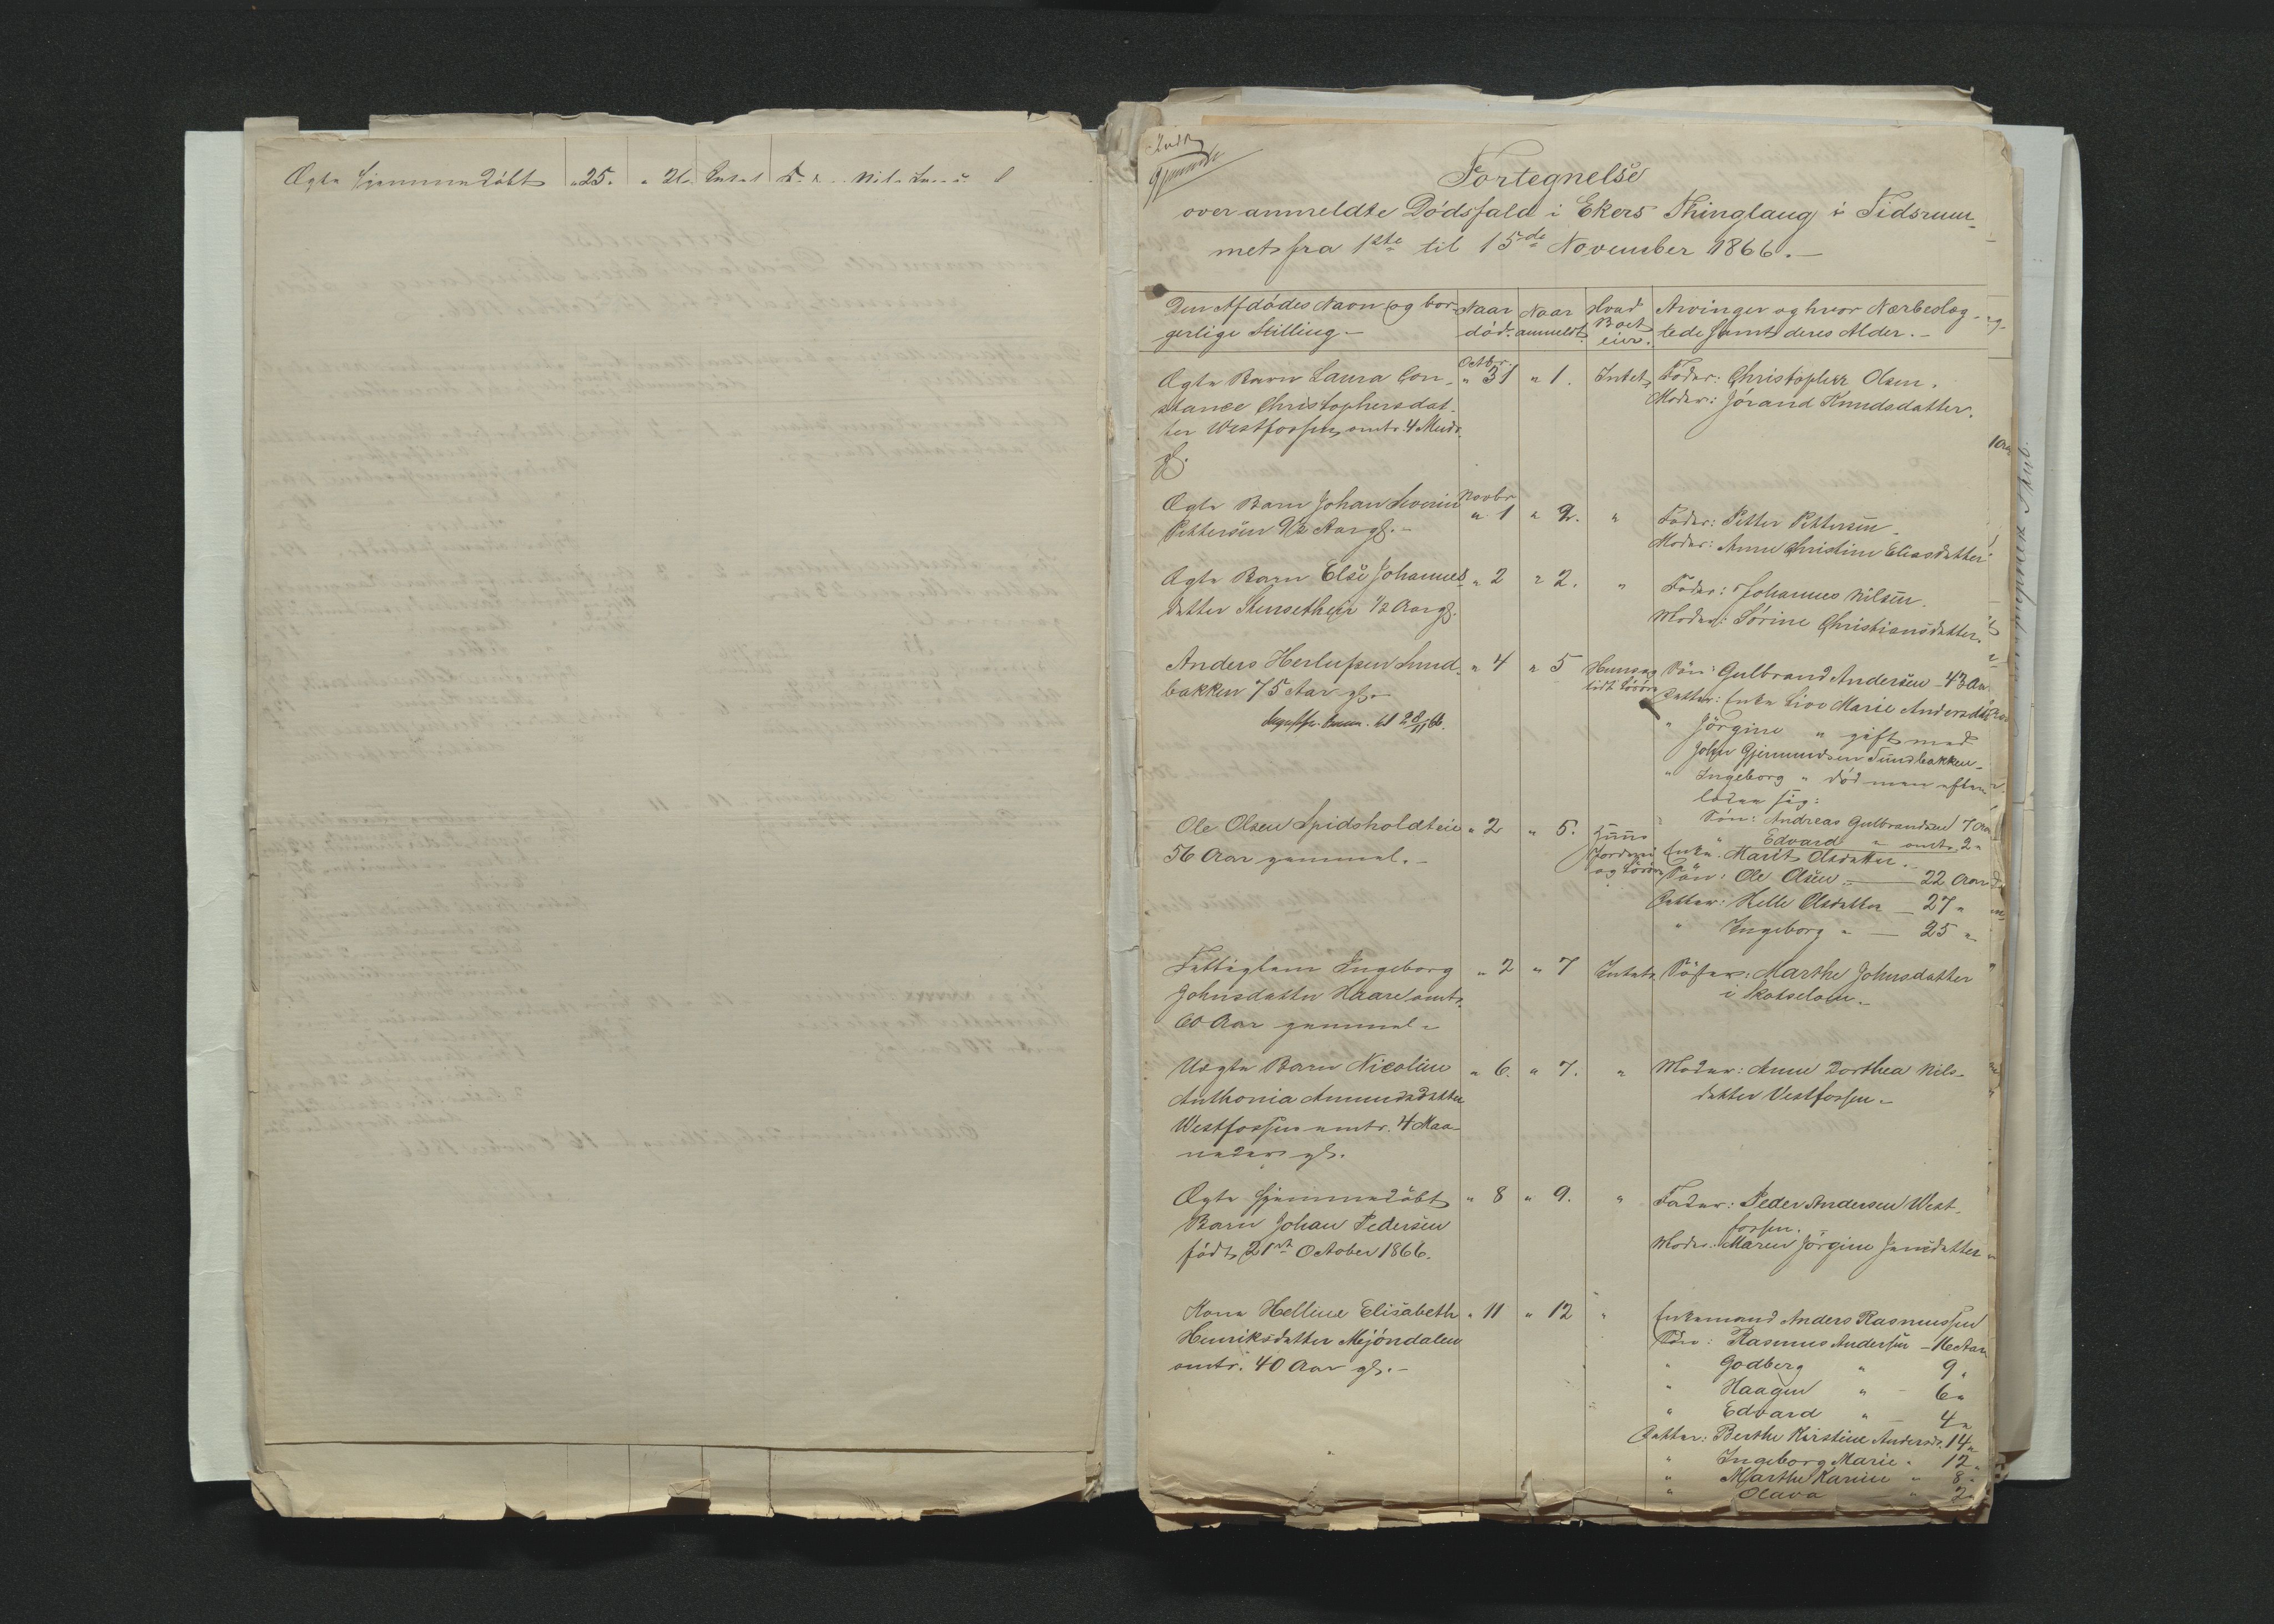 Ægte hjemmedöbt "25. " 26. Intet
Fortegnelse
over anmeldte Dödsfald i Ekers Thinglaug i Tidsrum-
met fra 1ste til 15de November 1866.-
Den Afdödes Navn og bor-
gerlige Stilling.-
Naar
död.
Naar
anmeldt.
Hvad
Boet
eier.
Arvinger og hvor Nærbeslæg-
tede samt deres Alder.-
Ægte Barn Laura Con-
stance Christophersdat-
ter Westfossen, omtr. 4 Mndr.
gl.
Octbr.
" 31 " 1. Intet
Fader: Christopher Olsen.
Moder: Jörand Knudsdatter.
Ægte Barn Johan
Pettersen 9 1/2 Aar gl.-
Novbr
" 1 " 2. "
Fader: Petter Pettersen.
Moder: Anne Christine Eliasdatter
Ægte Barn Else Johannes-
datter Stensetheier 1/2 Aar gl.
" 2 " 2. "
Fader: Johannes Nilsen.
Moder: Sörine Christiansdatter.
Anders Herlufsen Sund-
bakken 75 Aar gl.-
28/11 66.
" 4 " 5 Huus og
lidt Lösöre
Sön: Gulbrand Andersen - 43 Aar
Datter: Enke Live Marie Andersdatter
" Jörgine " gift med
John Gjermundsen Sundbakken-
" Ingeborg " död men efter-
lader sig:
Sön: Andreas Gulbrandsen 7 Aar
" Edvard " omtr. 2 "
Ole Olsen Spidsholdteie
56 Aar gammel.-
" 2 " 5. Huus
Jordvei
og Lösöre
Enke: Marit Olsdatter.-
Sön: Ole Olsen - 22 Aar
Datter: Helle Olsdatter - 27 "
" Ingeborg " - 25 "
Fattiglem Ingeborg
Johnsdatter Haare omtr.
60 Aar gammel-
" 2 " 7 Intet
Söster: Marthe Johnsdatter
i Skotselven.-
Uægte Barn Nicoline
Anthonia Amundsdatter
Westfossen omtr. 4 Maa-
neder gl.
" 6. " 7. "
Moder: Anne Dorthea Nils-
datter Vestfossen.-
Ægte hjemmedöbt
Barn Johan Pedersen
födt 21de October 1866.
" 8 " 9. "
Fader: Peder Andersen West-
fossen.
Moder: Maren Jörgine Jensdatter
Kone Helline Elisabeth
Henriksdatter Mjöndalen
omtr. 40 Aar gl.-
" 11 " 12 "
Enkemand Anders Rasmussen
Sön: Rasmus Andersen - 16 Aar
" Godberg " 9 "
" Haagen " - 6 "
" Edvard " - 4 "
Datter: Berthe Kirstine Andersd. 14 "
" Ingeborg Marie " 12 "
" Marthe Karine " 8 "
" Olava " 2 "